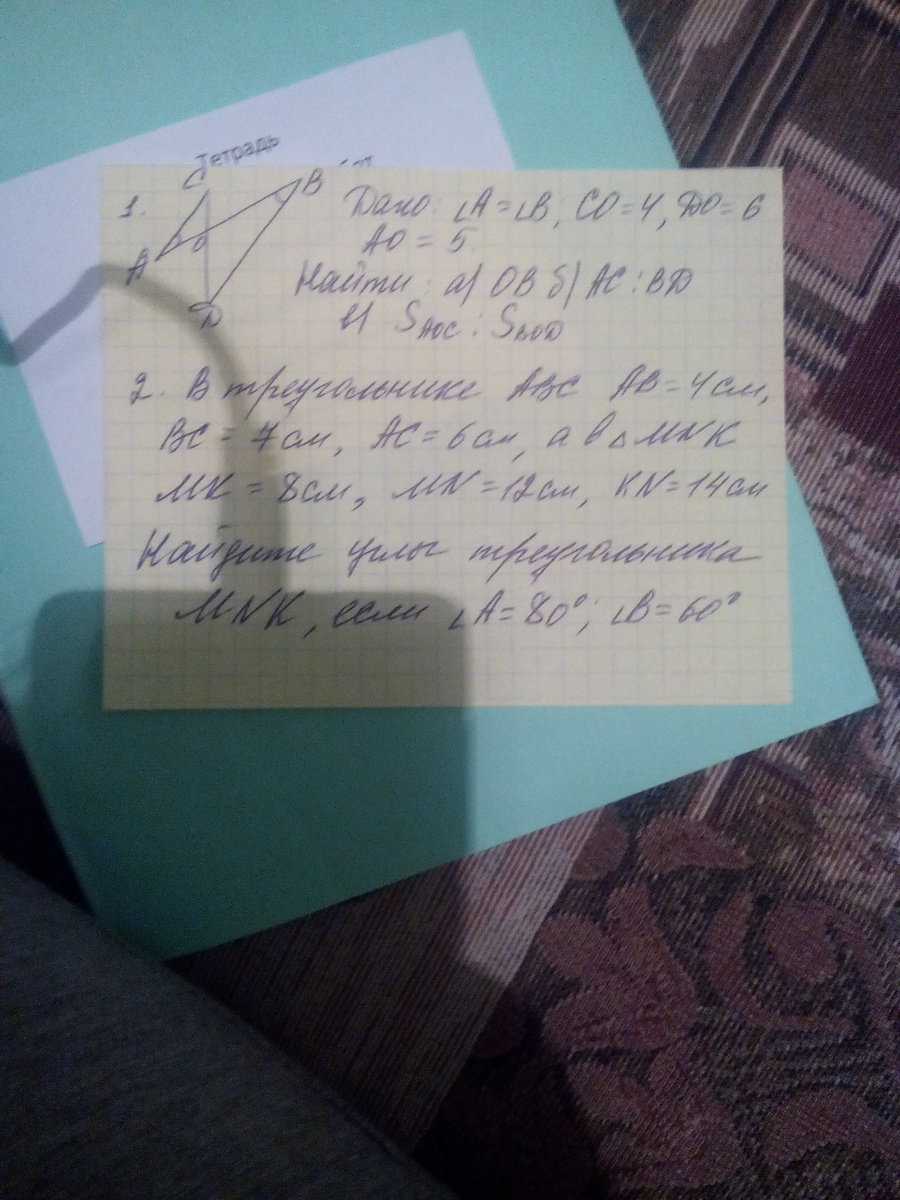 Тетрадь
1. C B A O D Дано: ∠A = ∠B; CO = 4, DO = 6
AO = 5.
Найти: а) OB б) AC : BD
в) S_AOC : S_BOD
2. В треугольнике ABC AB = 4 см,
BC = 7 см, AC = 6 см, а в △ MNK
MK = 8 см, MN = 12 см, KN = 14 см
Найдите углы треугольника
MNK, если ∠A = 80°; ∠B = 60°